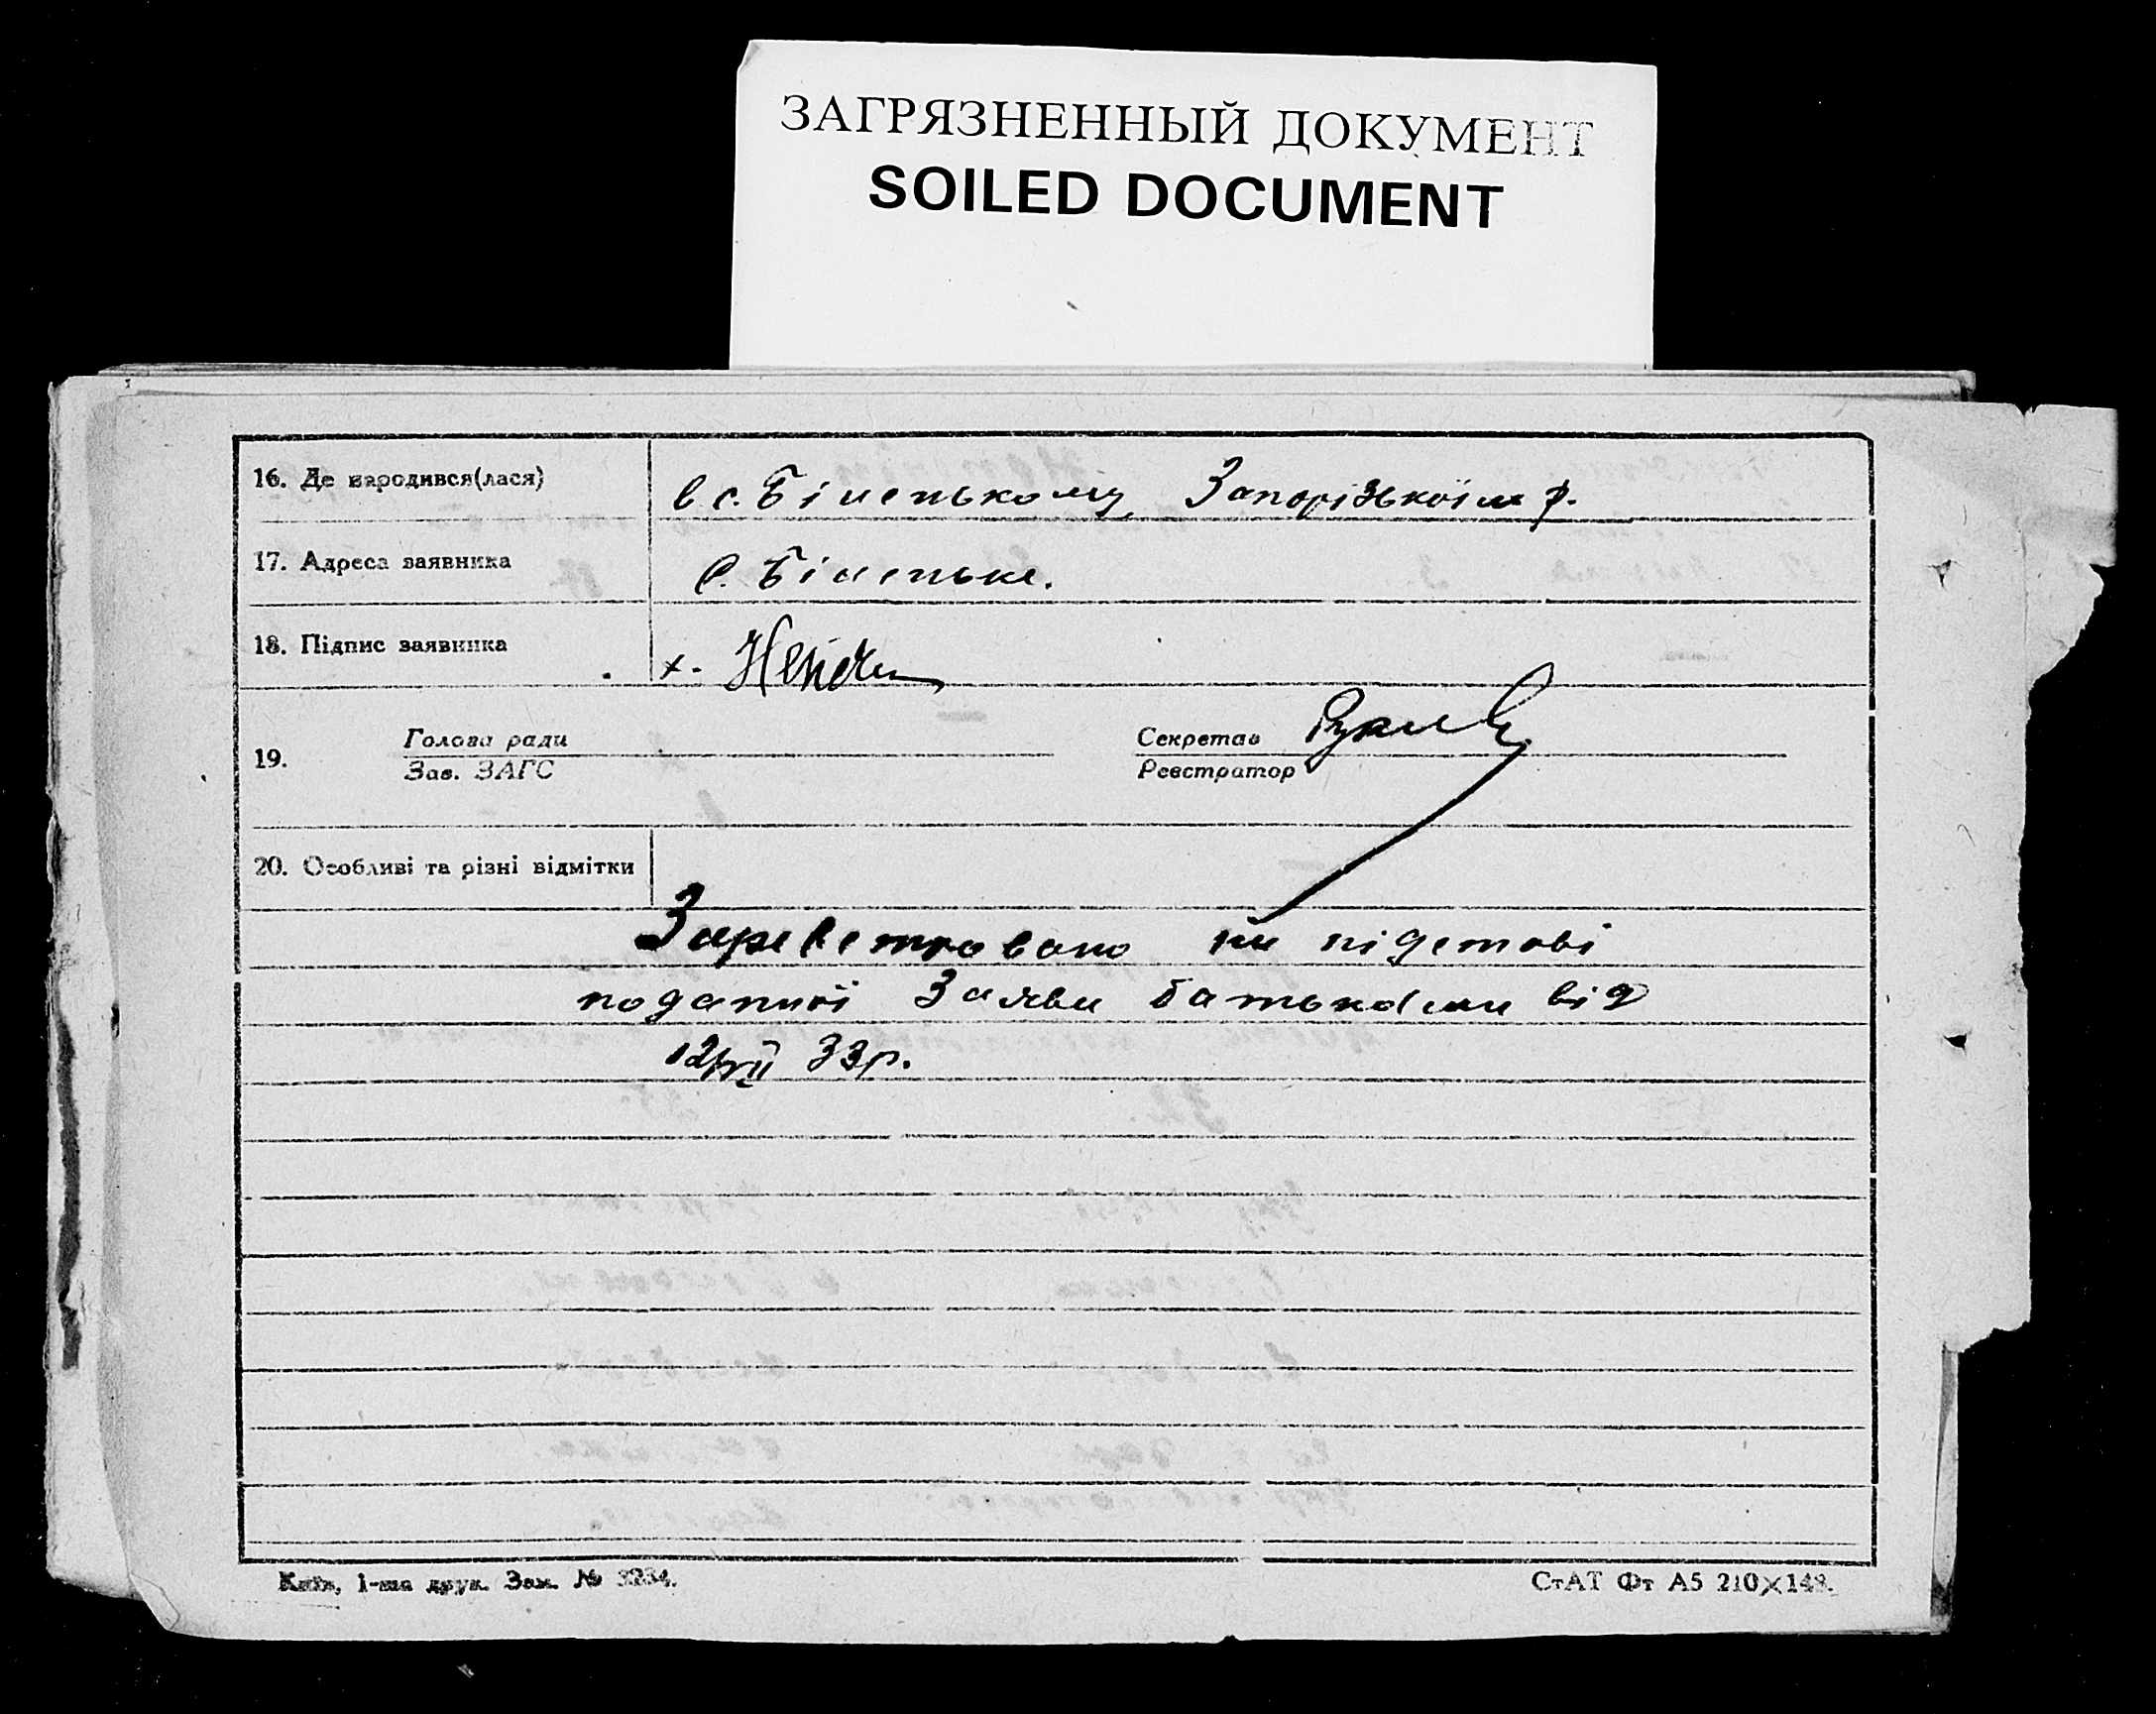 ЗАГРЯЗНЕННЫЙ ДОКУМЕНТ
SOILED DOCUMENT
16. Де народився(лася) в с. Біленькому, Запорізької м р.
17. Адреса заявника с. Біленьке.
18. Підпис заявника х.
19. Голова ради Секретар
Зав. ЗАГС Реєстратор
20. Особливі та різні відмітки
Зареєстровано на підставі
поданої Заяви батьками від
12/VII 33р.
Київ, 1-ша друк. Зам. № 3234.
СтАТ Фт А5 210×148.